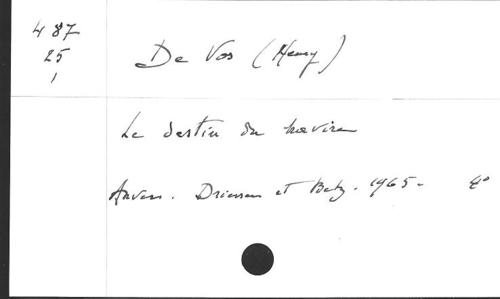 487
25
1
De Vos (Henry)
Le destin du navire
Anvers. Driessen et Betz. 1965- 4°